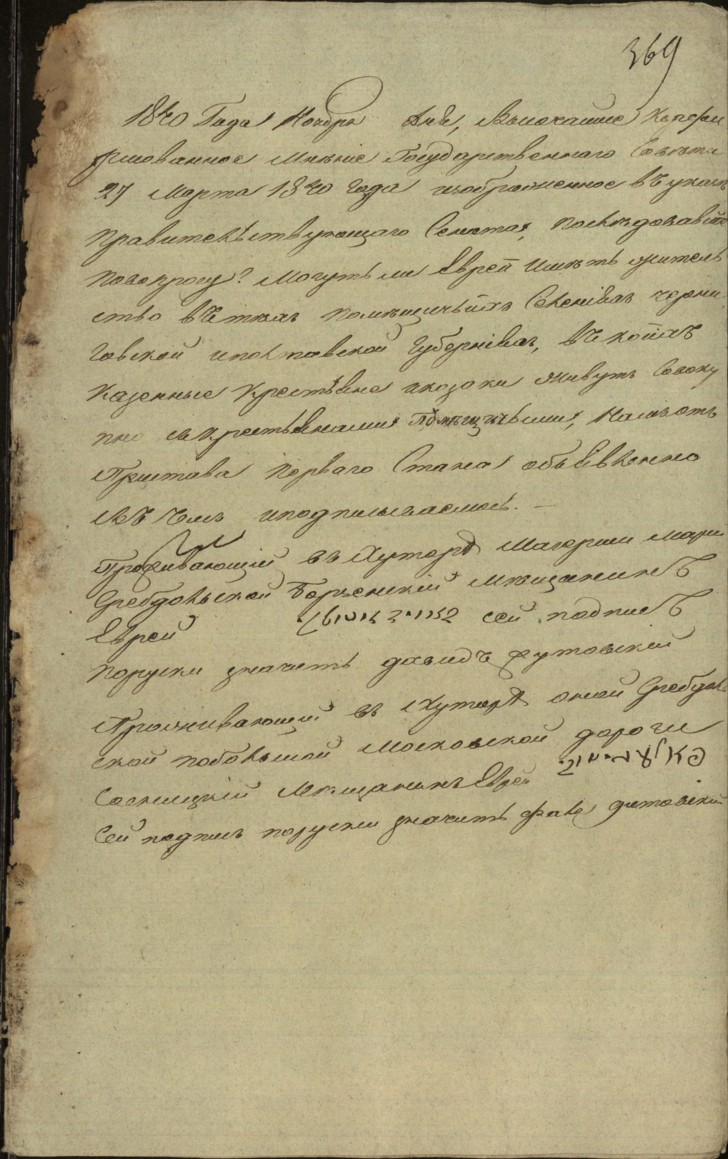 369
1840 Года Ноября дня, Высочайше Конфир
мованное Мнение Государственнаго Совета
27 Марта 1840 года изображенное въ указе
Правительствующаго Сената, последовавшее
повопросу? Могутъ ли Евреи иметь житель
ство въ техъ помещичьихъ Селенияхъ черни
говской иполтавской Губернияхъ, въ коихъ
казенные крестьяне иказаки живутъ Совоку
пно съкрестьянами помещичьими, Намъ отъ
Пристава перваго Стана объявленно
въ чемъ иподписываемся. —
Проживающій въ Хуторе Материи
Гребдовской Борзенскій мещанинъ
Еврей сей подписъ
поруски значитъ давидъ рутовскій
Проживающій въ Хуторе оной Гребдов
ской побольшой Московской дороги
Сосницкій мещанинъ Еврей
Сей подпись поруски значитъ